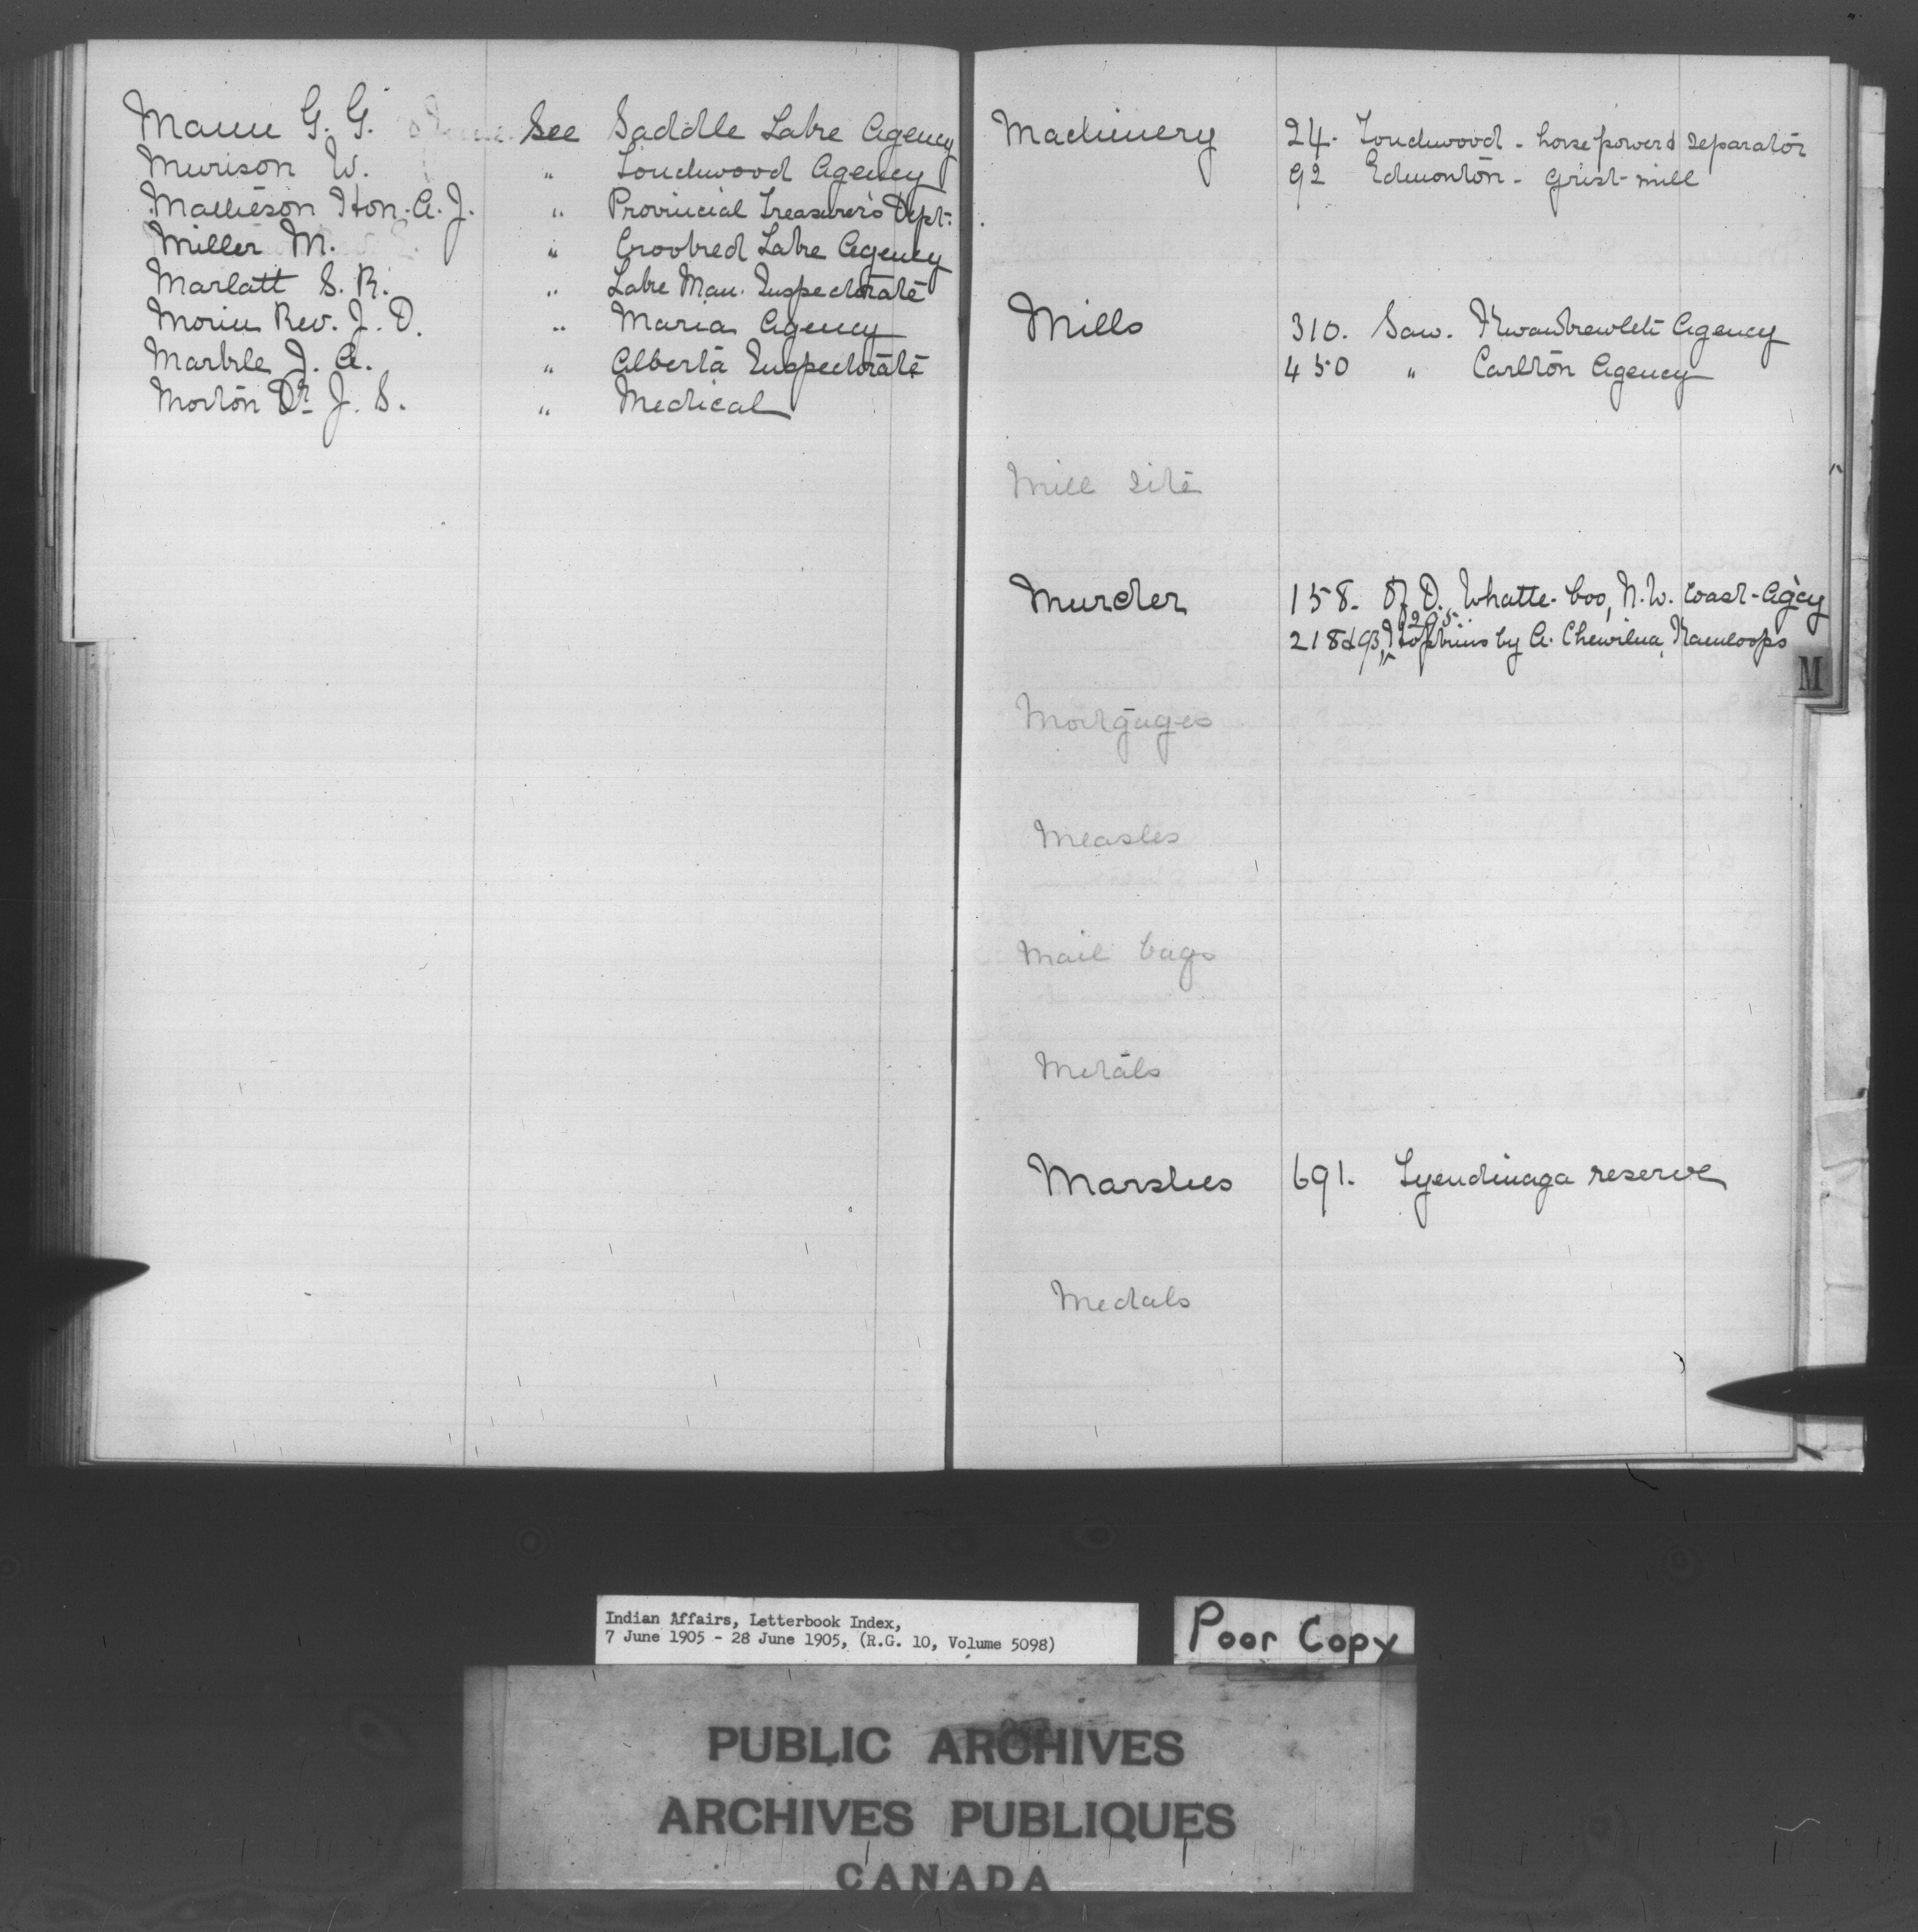 Mann G. G. See Saddle Lake Agency
Murison W. " Touchwood Agency
Mathieson Hon. A. J. " Provincial Treasurer's Dept.
Miller M. " Crooked Lake Agency
Marlatt S. R. " Lake Man. Inspectorate
Morin Rev. J. D. " Maria Agency
Markle J. A. " Alberta Inspectorate
Morton Dr J. S. " Medical
Machinery 24. Touchwood - horse power & separator
92 Edmonton - grist-mill
Mills 310. Saw. Kwawkewlth Agency
450 " Carlton Agency
Mill site
Murder 158. Of D. Whatte-Coo, N.W. Coast-Agcy
295
218 & 93, Hopkins by A. Chewilna, Kamloops
M
Mortgages
Measles
Mail bags
Metals
Marshes 691. Tyendinaga reserve
Medals
Indian Affairs, Letterbook Index,
7 June 1905 - 28 June 1905, (R.G. 10, Volume 5098)
Poor Copy
PUBLIC ARCHIVES
ARCHIVES PUBLIQUES
CANADA